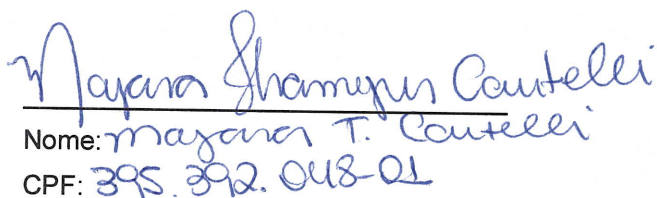 Mayara Cantelli
Nome: Mayara T. Cantelli
CPF: 395.392.048-01